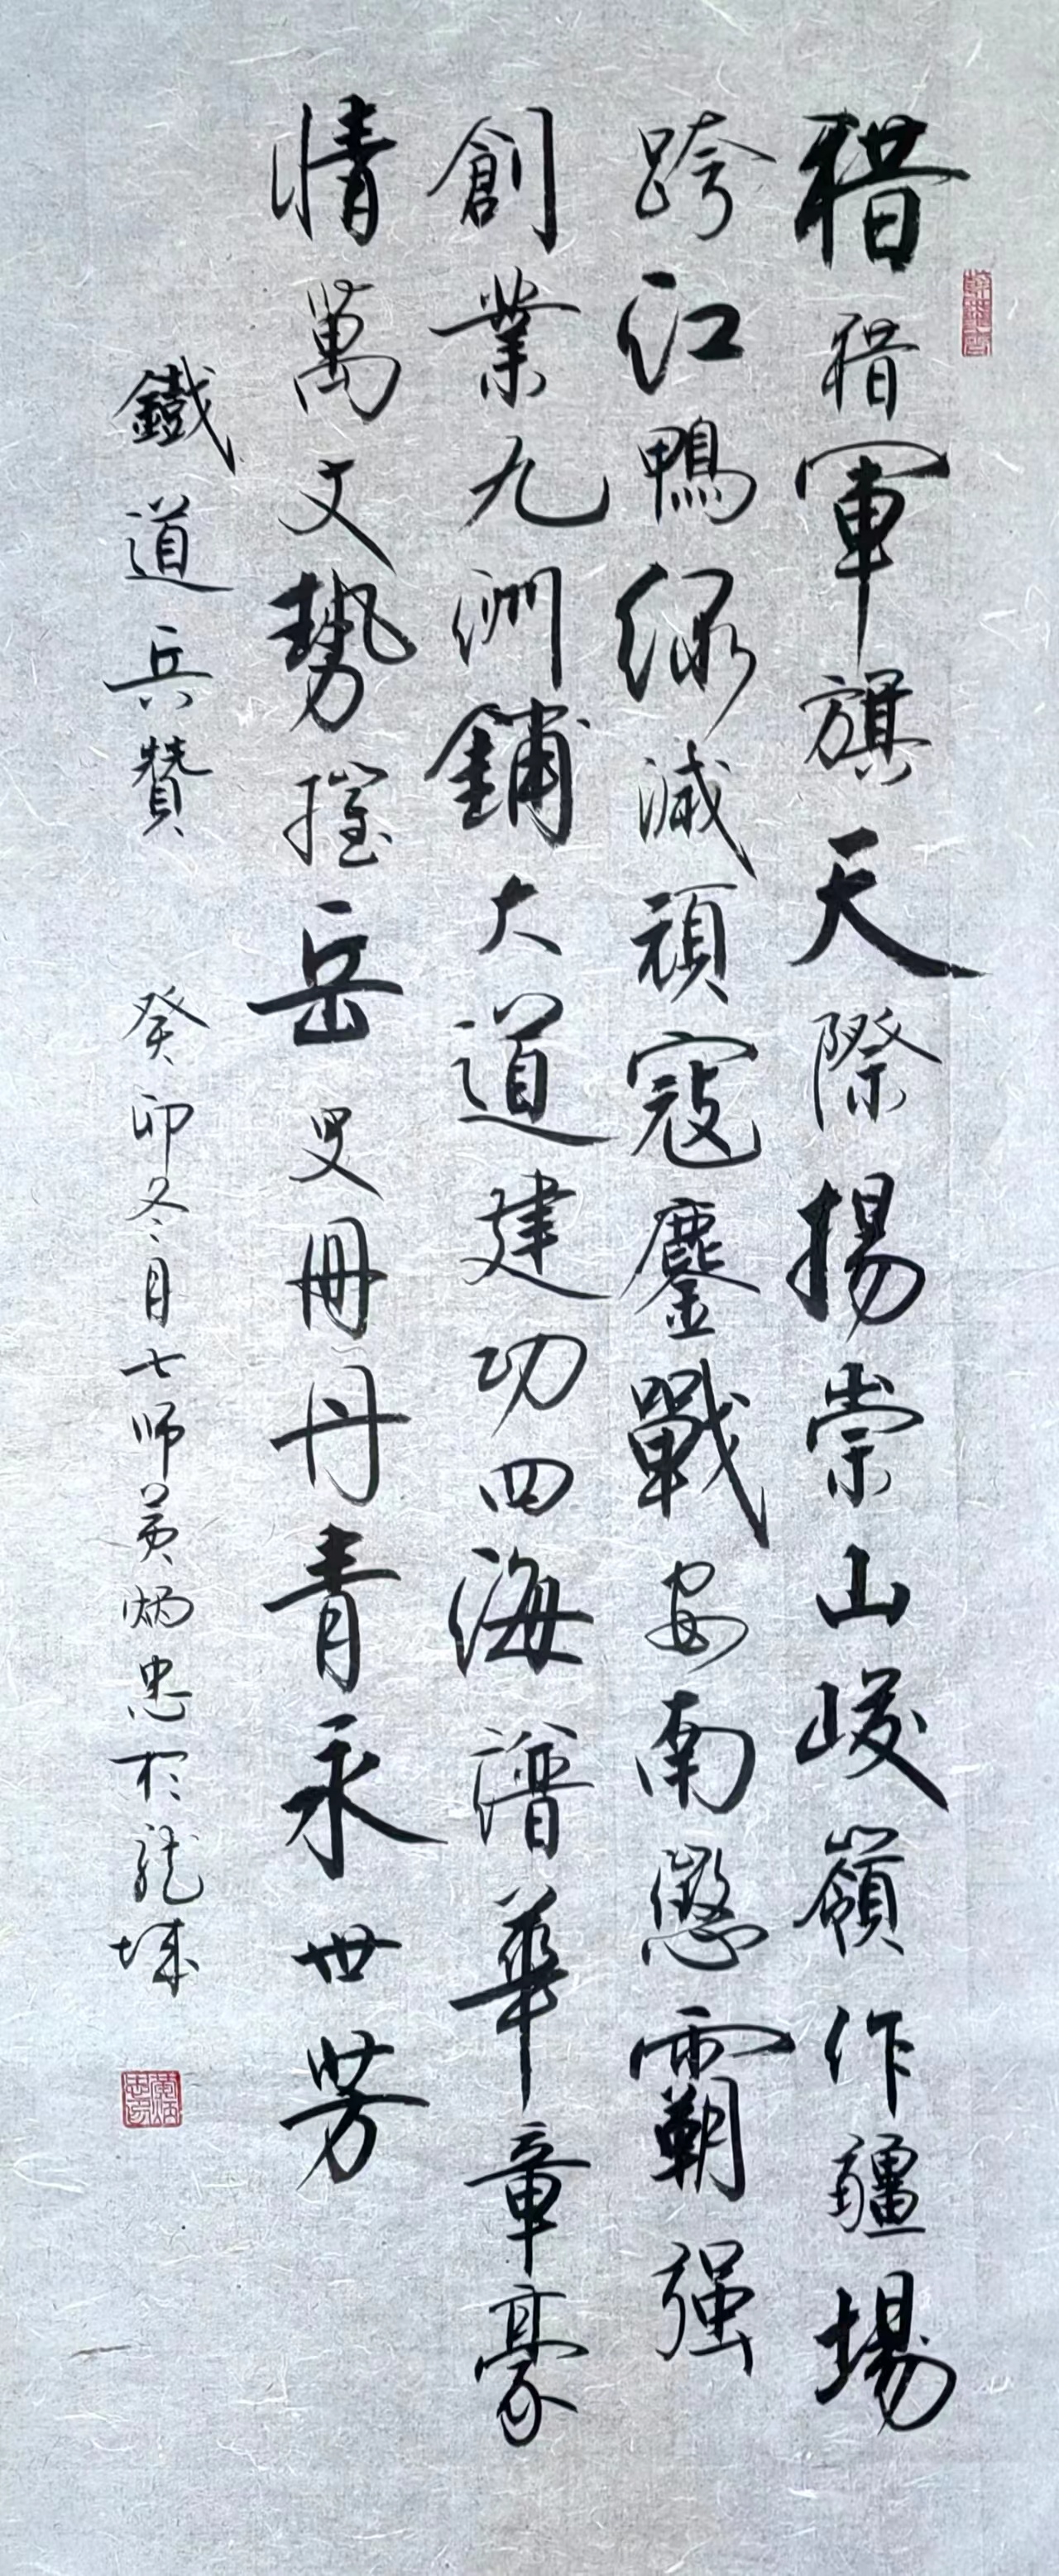 猎猎軍旗天際揚崇山峻嶺作疆場
跨江鴨绿滅頑寇鏖戰安南懲霸强
創業九洲鋪大道建功四海譜華章豪
情萬丈勢摧岳史冊丹青永世芳
鐵道兵贊 癸卯冬月七师黄炳忠於龍城